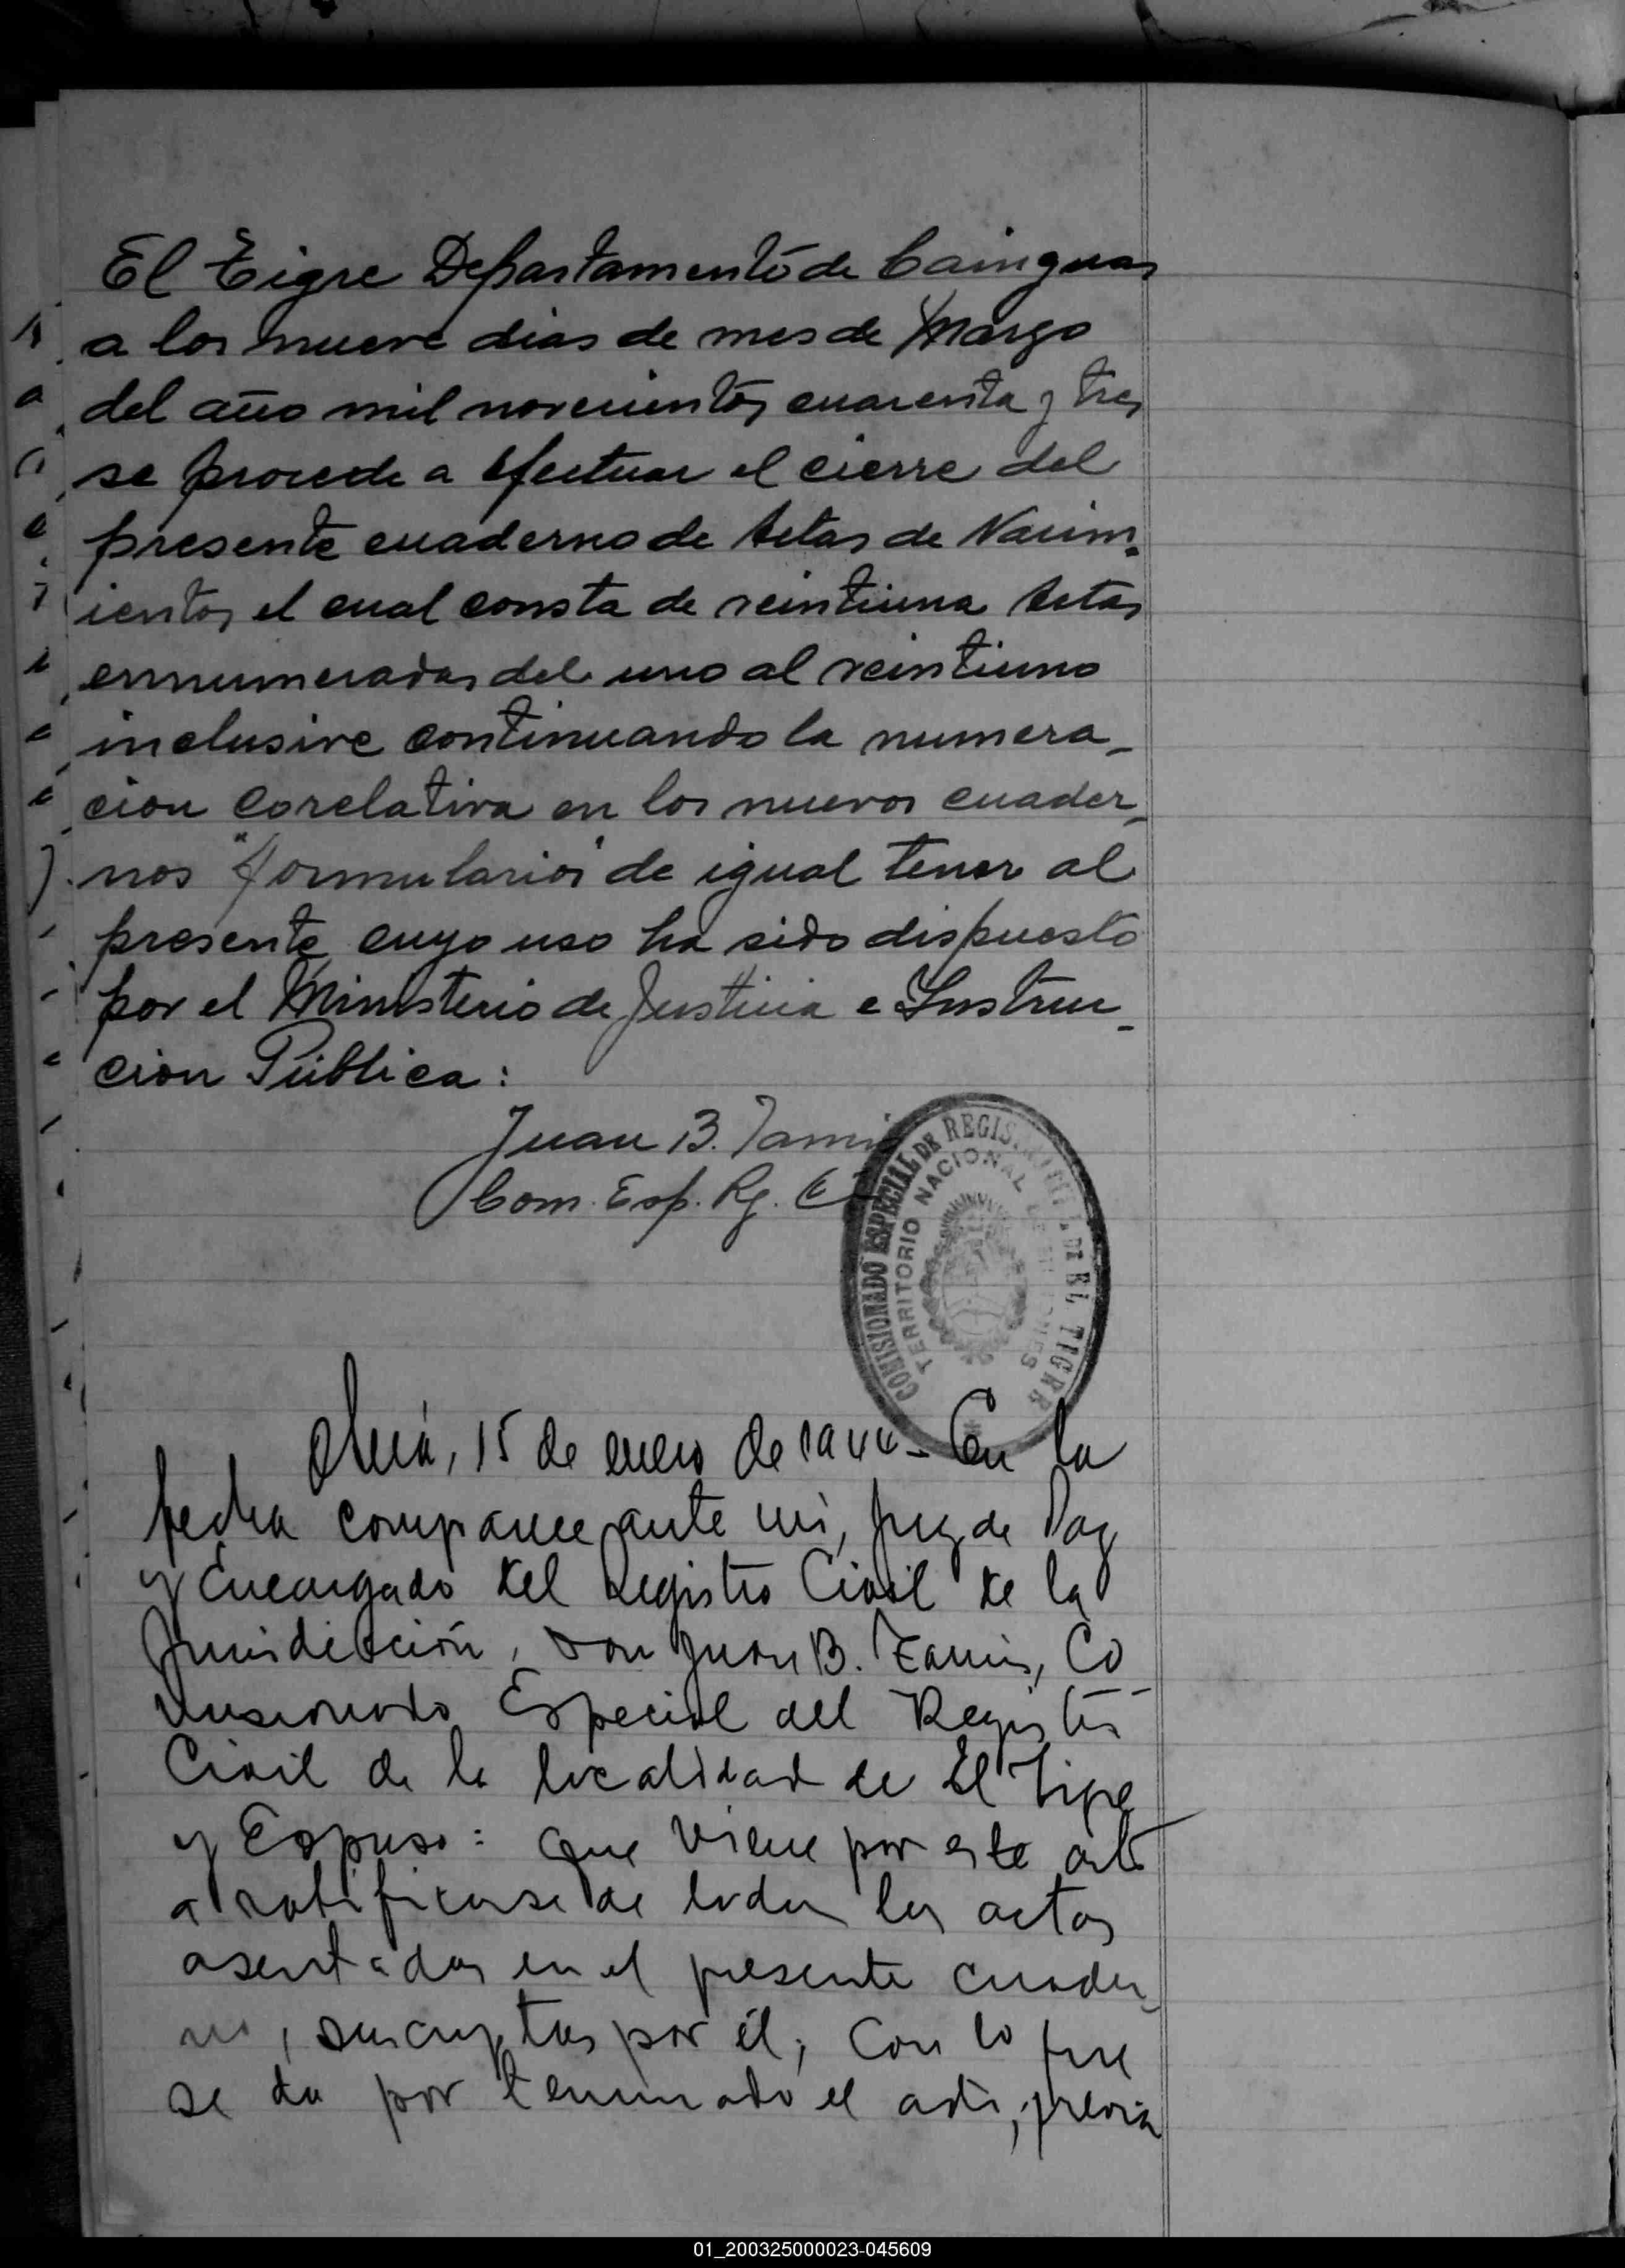 El Tigre Departamento de Cainguas
a los nueve dias de mes de Marzo
del año mil novecientos cuarenta y tres
se procede a efectuar el cierre del
presente cuaderno de Actas de Nacim-
ientos el cual consta de veintiuna Actas
ennumeradas del uno al veintiuno
inclusive continuando la numera-
cion corelativa en los nuevos cuader-
nos "formularios de igual tenor al
presente cuyo uso ha sido dispuesto
por el Ministerio de Justicia e Instruc-
cion Pública:
Juan B.
Com. Esp. Rg. C
COMISIONADO ESPECIAL DE REGISTRO CIVIL DE EL TIGRE
TERRITORIO NACIONAL DE MISIONES
Oberá, 15 de enero de 1944 - En la
fecha comparece ante mi, Juez de Paz
y Encargado del Registro Civil de la
Jurisdicción, Don Juan B. Co
misionado Especial del Registro
Civil de la localidad de El Tigre
y Expuso: Que viene por este acto
a ratificarse de todas las actas
asentadas en el presente cuader-
no, suscriptas por él; Con lo que
se da por terminado el acto, previa
01_200325000023-045609